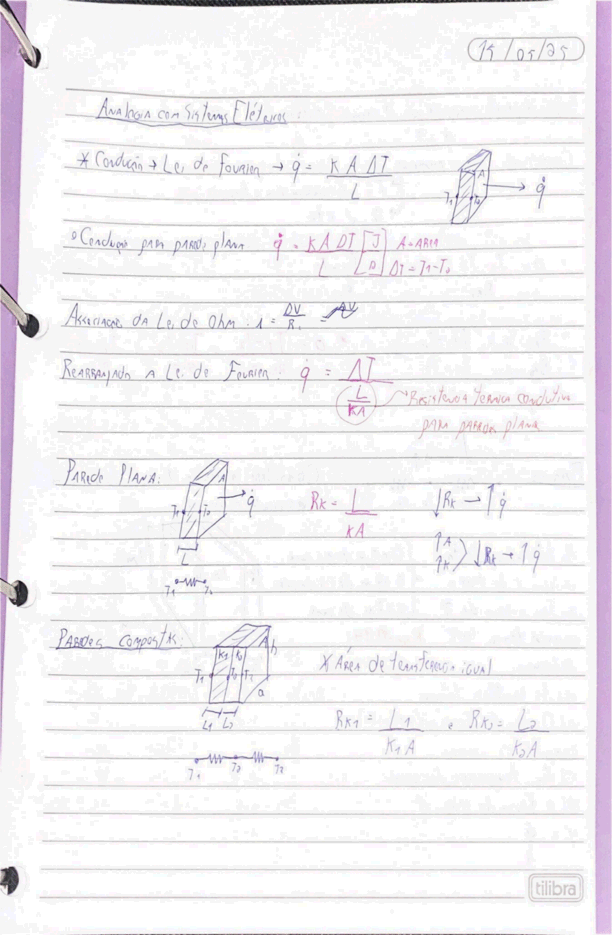 15/05/25
Analogia com Sistemas Elétricos:
* Condução → Lei de Fourier → q̇ = K A ΔT / L
A
T1 T2 → q̇
° Condução para parede plana q̇ = K A ΔT / L [J/s] A = Área
ΔT = T1 - T2
Associação da Lei de Ohm: i = ΔV / R
Rearranjando a Lei de Fourier: q̇ = ΔT / (L / KA) → Resistência térmica condutiva
para parede plana
Parede Plana:
A
T1 T2 → q̇
L
T1 T2
Rk = L / KA
↓Rk → ↑q̇
↑A
↑K > ↓Rk → ↑q̇
Paredes compostas:
K1 K2 A b
T1 T2 T3
a
L1 L2
T1 T2 T3
* Área de transferência igual
Rk1 = L1 / K1A e Rk2 = L2 / K2A
tilibra